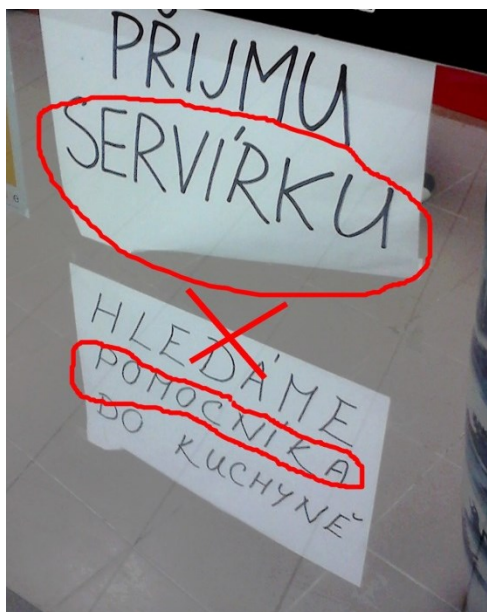 PŘIJMU
SERVÍRKU
HLEDÁME
POMOCNÍKA
DO KUCHYNĚ